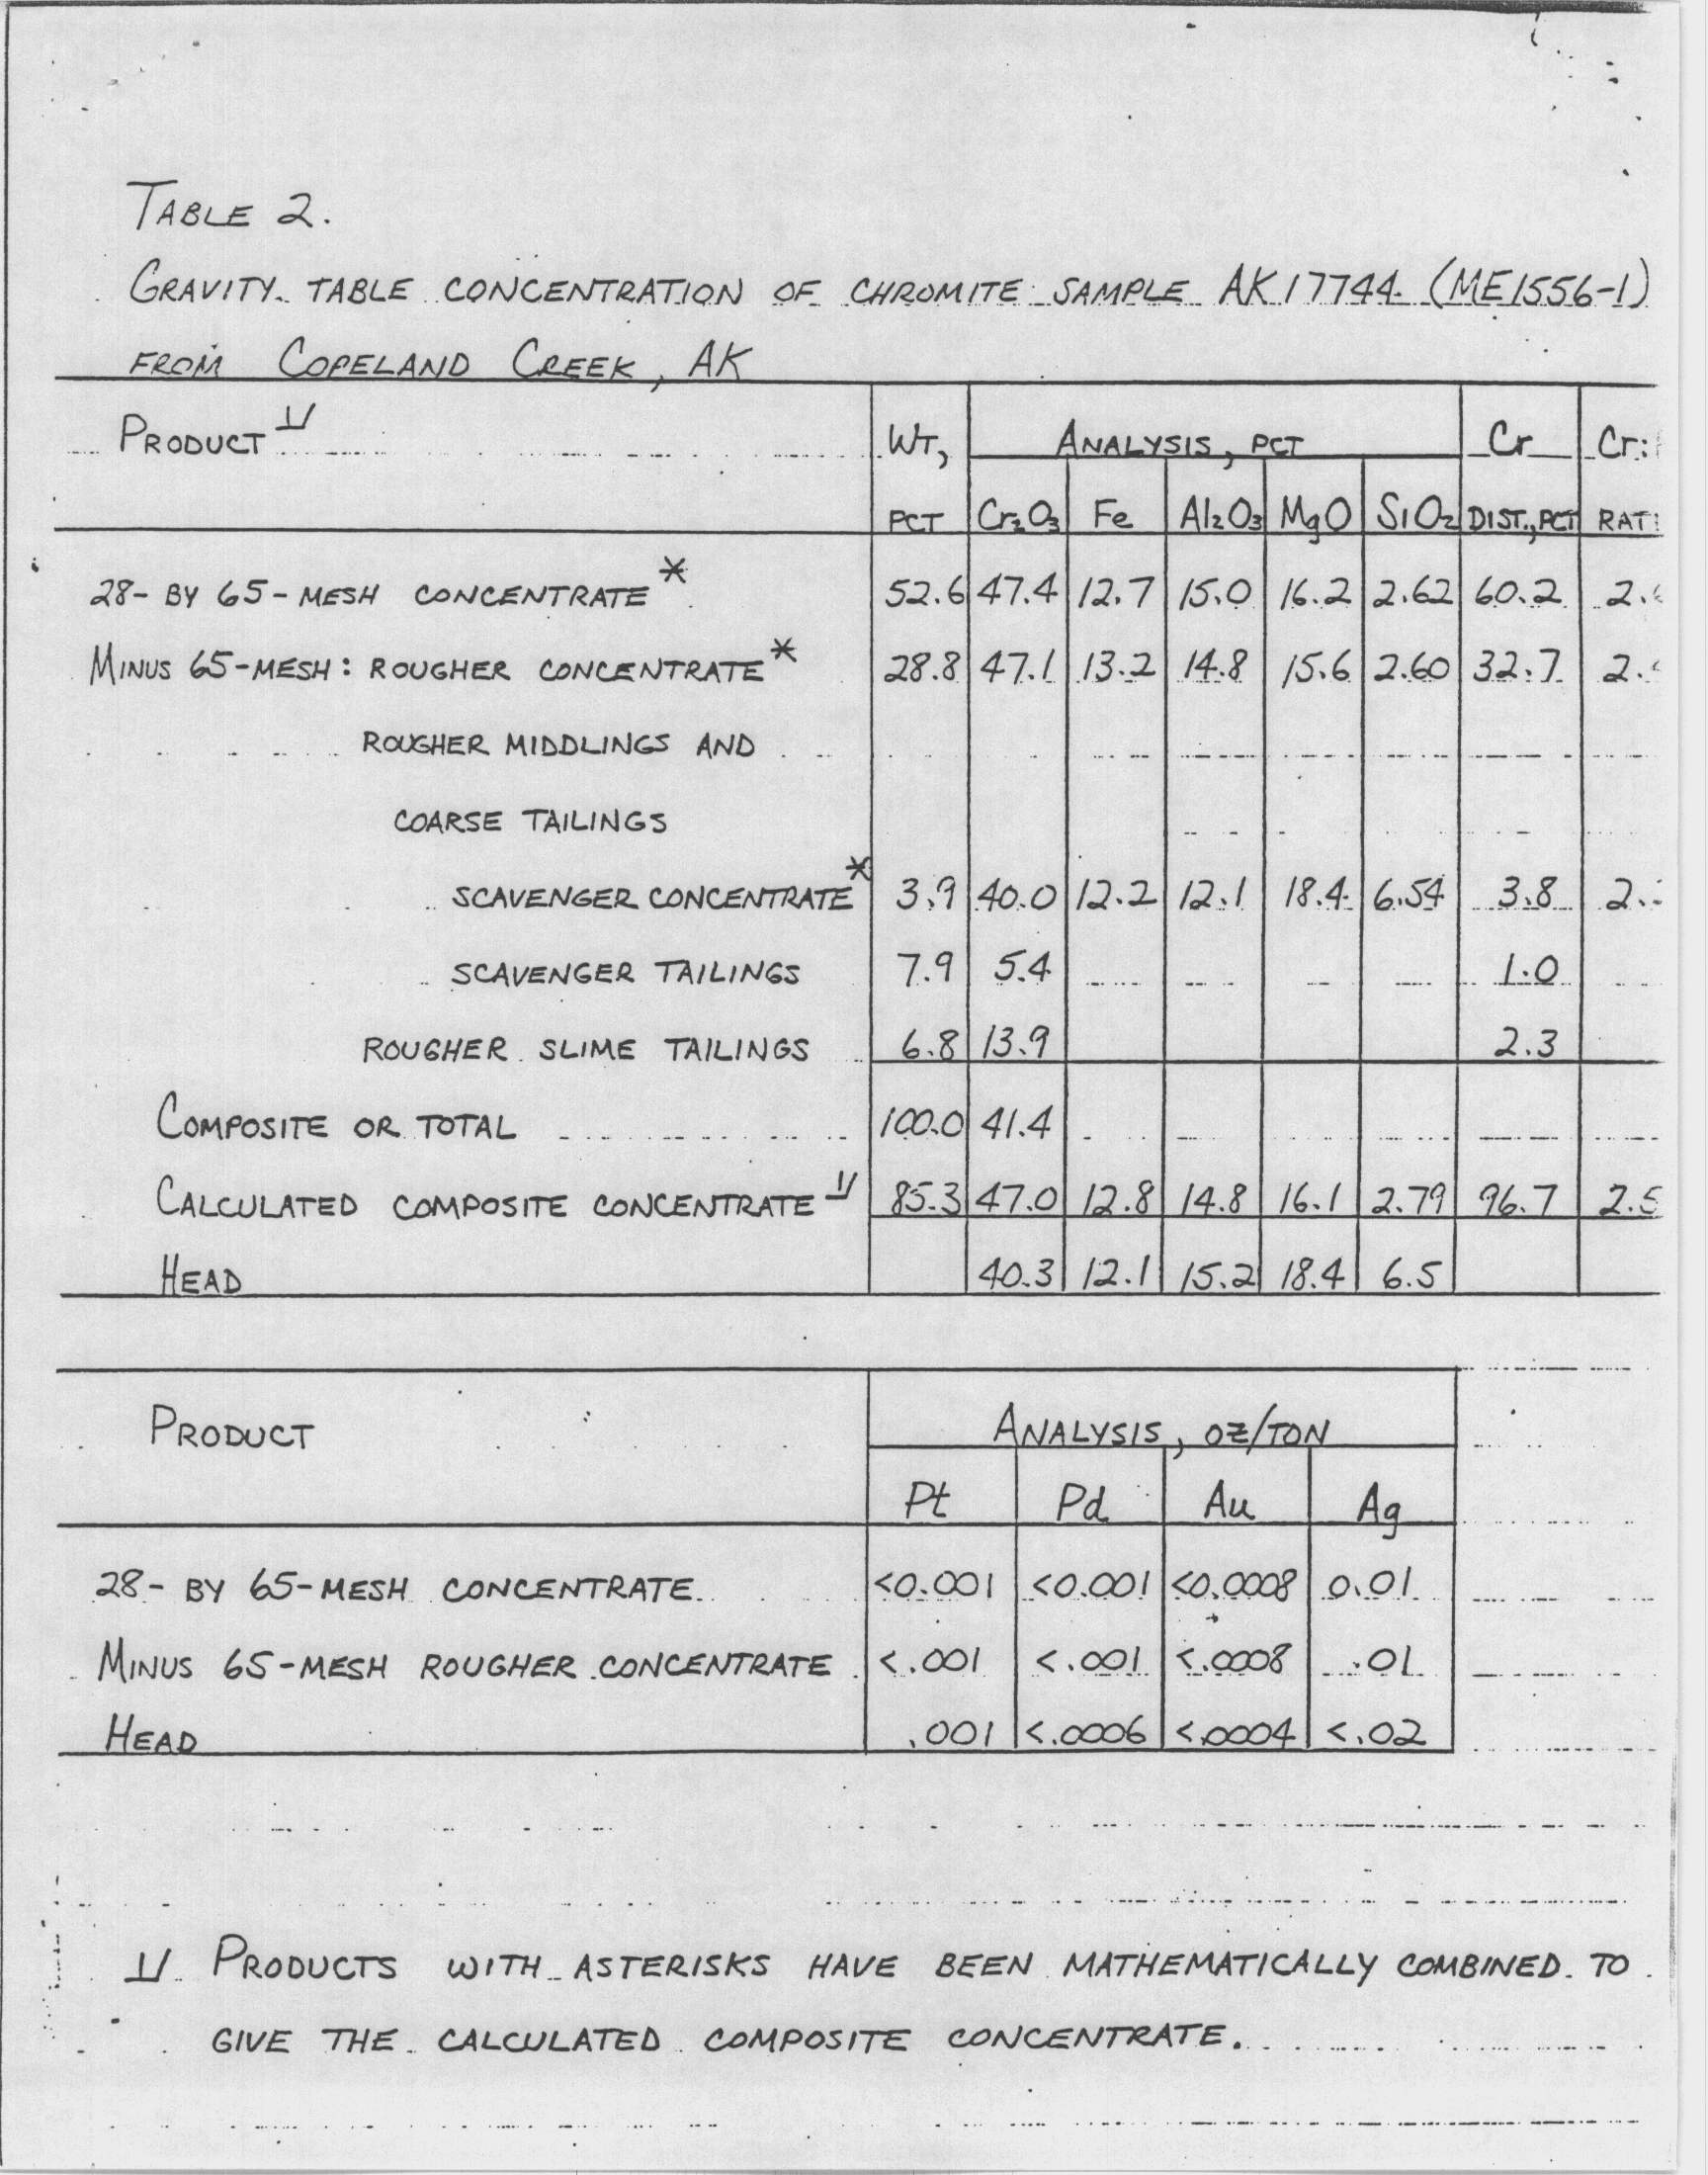 TABLE 2.
GRAVITY TABLE CONCENTRATION OF CHROMITE SAMPLE AK17744 (ME1556-1)
FROM COPELAND CREEK, AK
PRODUCT 1/ WT, ANALYSIS, PCT Cr Cr:
PCT Cr2O3 Fe Al2O3 MgO SiO2 DIST., PCT
28- BY 65-MESH CONCENTRATE * 52.6 47.4 12.7 15.0 16.2 2.62 60.2
MINUS 65-MESH: ROUGHER CONCENTRATE * 28.8 47.1 13.2 14.8 15.6 2.60 32.7
ROUGHER MIDDLINGS AND
COARSE TAILINGS
SCAVENGER CONCENTRATE * 3.9 40.0 12.2 12.1 18.4 6.54 3.8
SCAVENGER TAILINGS 7.9 5.4 1.0
ROUGHER SLIME TAILINGS 6.8 13.9 2.3
COMPOSITE OR TOTAL 100.0 41.4
CALCULATED COMPOSITE CONCENTRATE 1/ 85.3 47.0 12.8 14.8 16.1 2.79 96.7 2.5
HEAD 40.3 12.1 15.2 18.4 6.5
PRODUCT ANALYSIS, OZ/TON
Pt Pd Au Ag
28- BY 65-MESH CONCENTRATE <0.001 <0.001 <0.0008 0.01
MINUS 65-MESH ROUGHER CONCENTRATE <.001 <.001 <.0008 .01
HEAD .001 <.0006 <.0004 <.02
1/ PRODUCTS WITH ASTERISKS HAVE BEEN MATHEMATICALLY COMBINED TO
GIVE THE CALCULATED COMPOSITE CONCENTRATE.